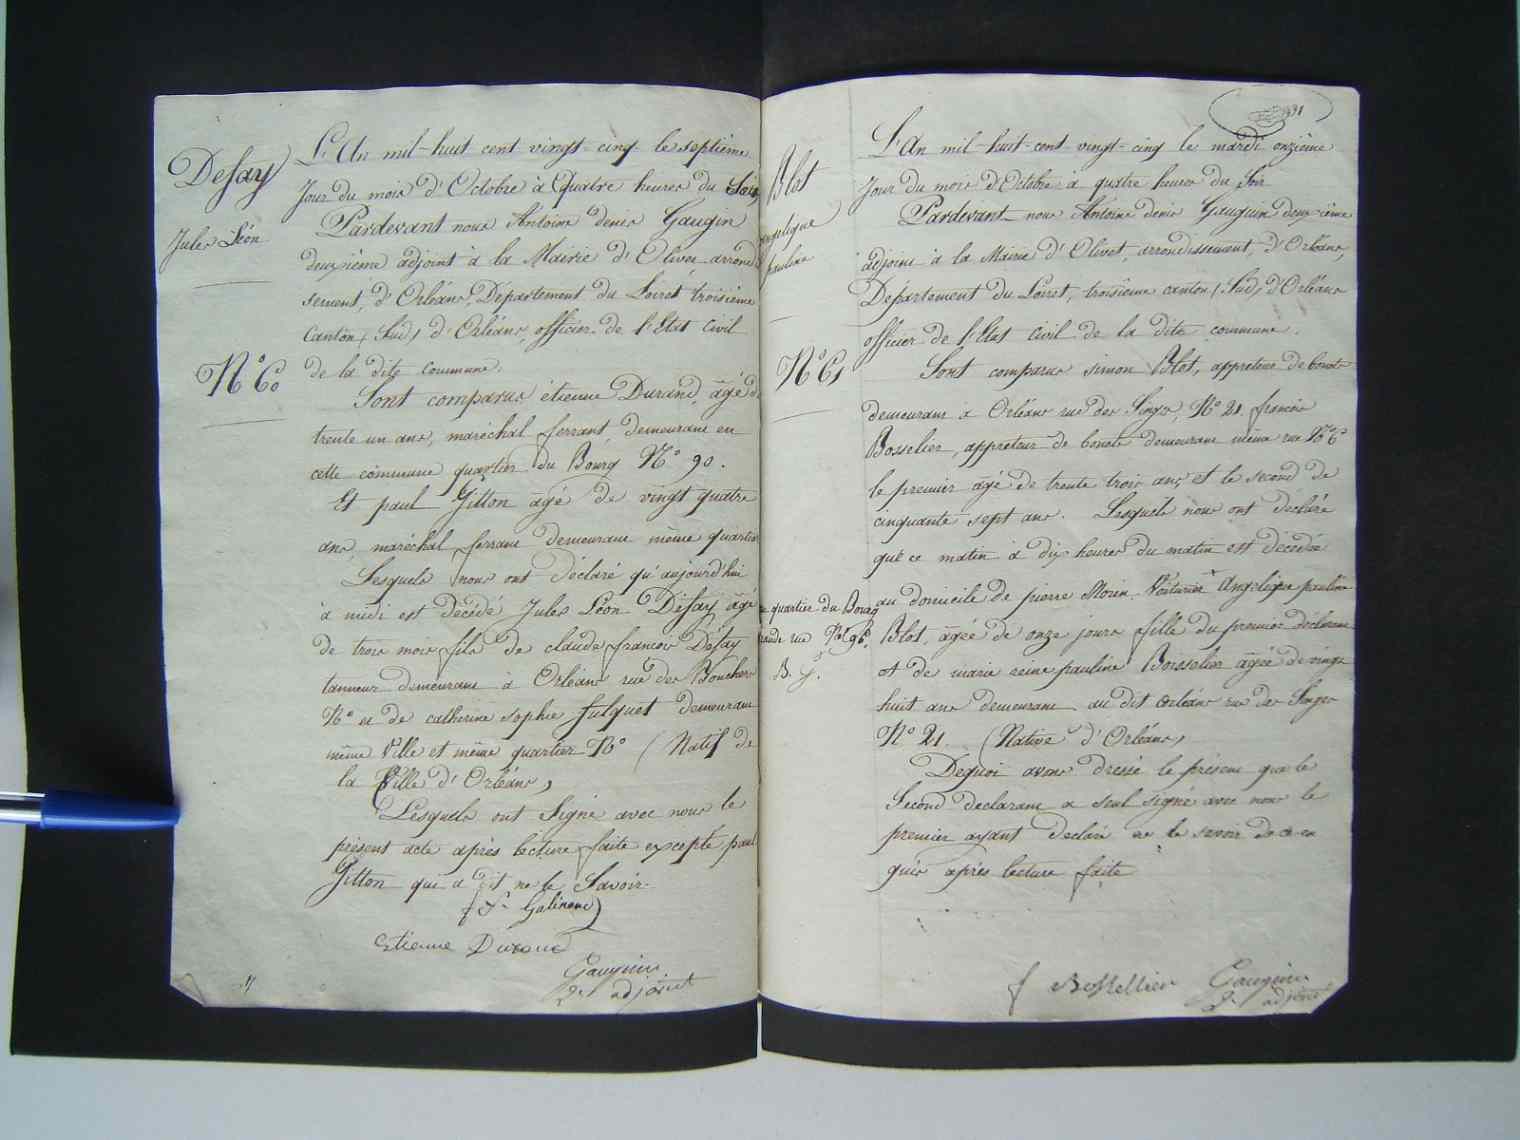 Defay
Jules Léon
N° 60
L'An mil-huit cent vingt-cinq le septième
Jour du mois d'Octobre à Quatre heures du Soir
Pardevant nous Antoine denis Gaugin
deuxième adjoint à la Mairie d'Olivet arrondis
sement, d'Orléans, Département du Loiret troisième
Canton (Sud) d'Orléans, officier de l'Etat Civil
de la dite commune.
Sont comparus étienne Durand, âgé de
trente un ans, maréchal ferrant demeurant en
cette commune quartier du Bourg N° 90.
Et paul Gitton âgé de vingt quatre
ans, maréchal ferrant demeurant même quartier
Lesquels nous ont déclaré qu'aujourd'hui
à midi est décédé Jules Léon Défay âgé
de trois mois fils de claude françois Défay
tanneur demeurant à Orléans rue des Bouchers
N° et de catherine sophie fulquet demeurant
même Ville et même quartier N° (Natif de
la Ville d'Orléans)
Lesquels ont Signé avec nous le
présent acte après lecture faite excepté paul
Gitton qui a dit ne le Savoir.
Etienne Durand
Gauguin
2e adjoint
91
Blot
angelique
pauline
N° 61
L'An mil-huit-cent-vingt-cinq le mardi onzième
Jour du mois d'Octobre à quatre heures du Soir
Pardevant nous Antoine denis Gauguin deuxième
adjoint à la Mairie d'Olivet, arrondissement, d'Orléans,
Département du Loiret, troisième canton (Sud) d'Orléans
officier de l'Etat Civil de la dite commune.
Sont comparus simon Blot, appreteur de bonets
demeurant à Orléans rue des Singes, N° 21. francois
Bosselier, appreteur de bonets demeurant même rue N° 6
le premier âgé de trente trois ans et le second de
cinquante sept ans. Lesquels nous ont declaré
que ce matin à dix heures du matin est décédée
au domicile de pierre Morin Voiturier Angelique pauline
quartier du Bourg
rue N° 96.
Blot, âgée de onze jours fille du premier déclarant
et de marie reine pauline Boisselier âgée de vingt
huit ans demeurant au dit Orléans rue des Singes
N° 21. (Native d'Orléans)
Dequoi avons dressé le présent que le
Second declarant a seul signé avec nous le
premier ayant declaré ne le savoir de ce en
quis après lecture faite
Gauguin
2e adjoint